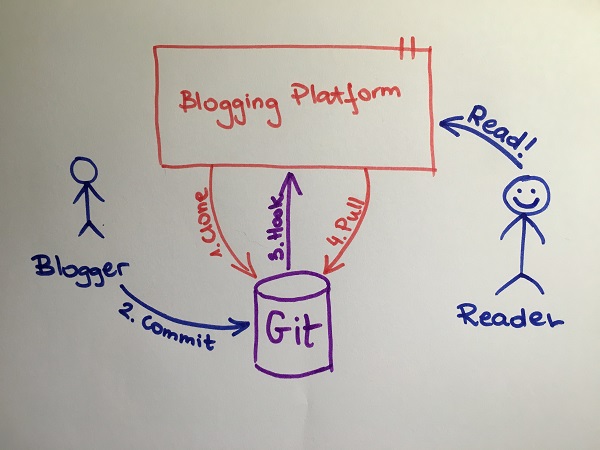 Blogging Platform
Read!
1. Clone
3. Hook
4. Pull
Blogger
2. Commit
Git
Reader